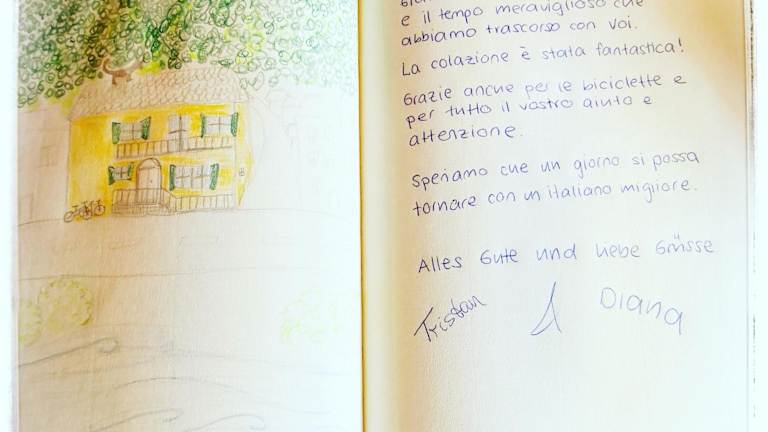 e il tempo meraviglioso che
abbiamo trascorso con voi.
La colazione è stata fantastica!
Grazie anche per le biciclette e
per tutto il vostro aiuto e
attenzione.
Speriamo che un giorno si possa
tornare con un italiano migliore.
Alles Gute und liebe Grüsse
Tristan & Diana